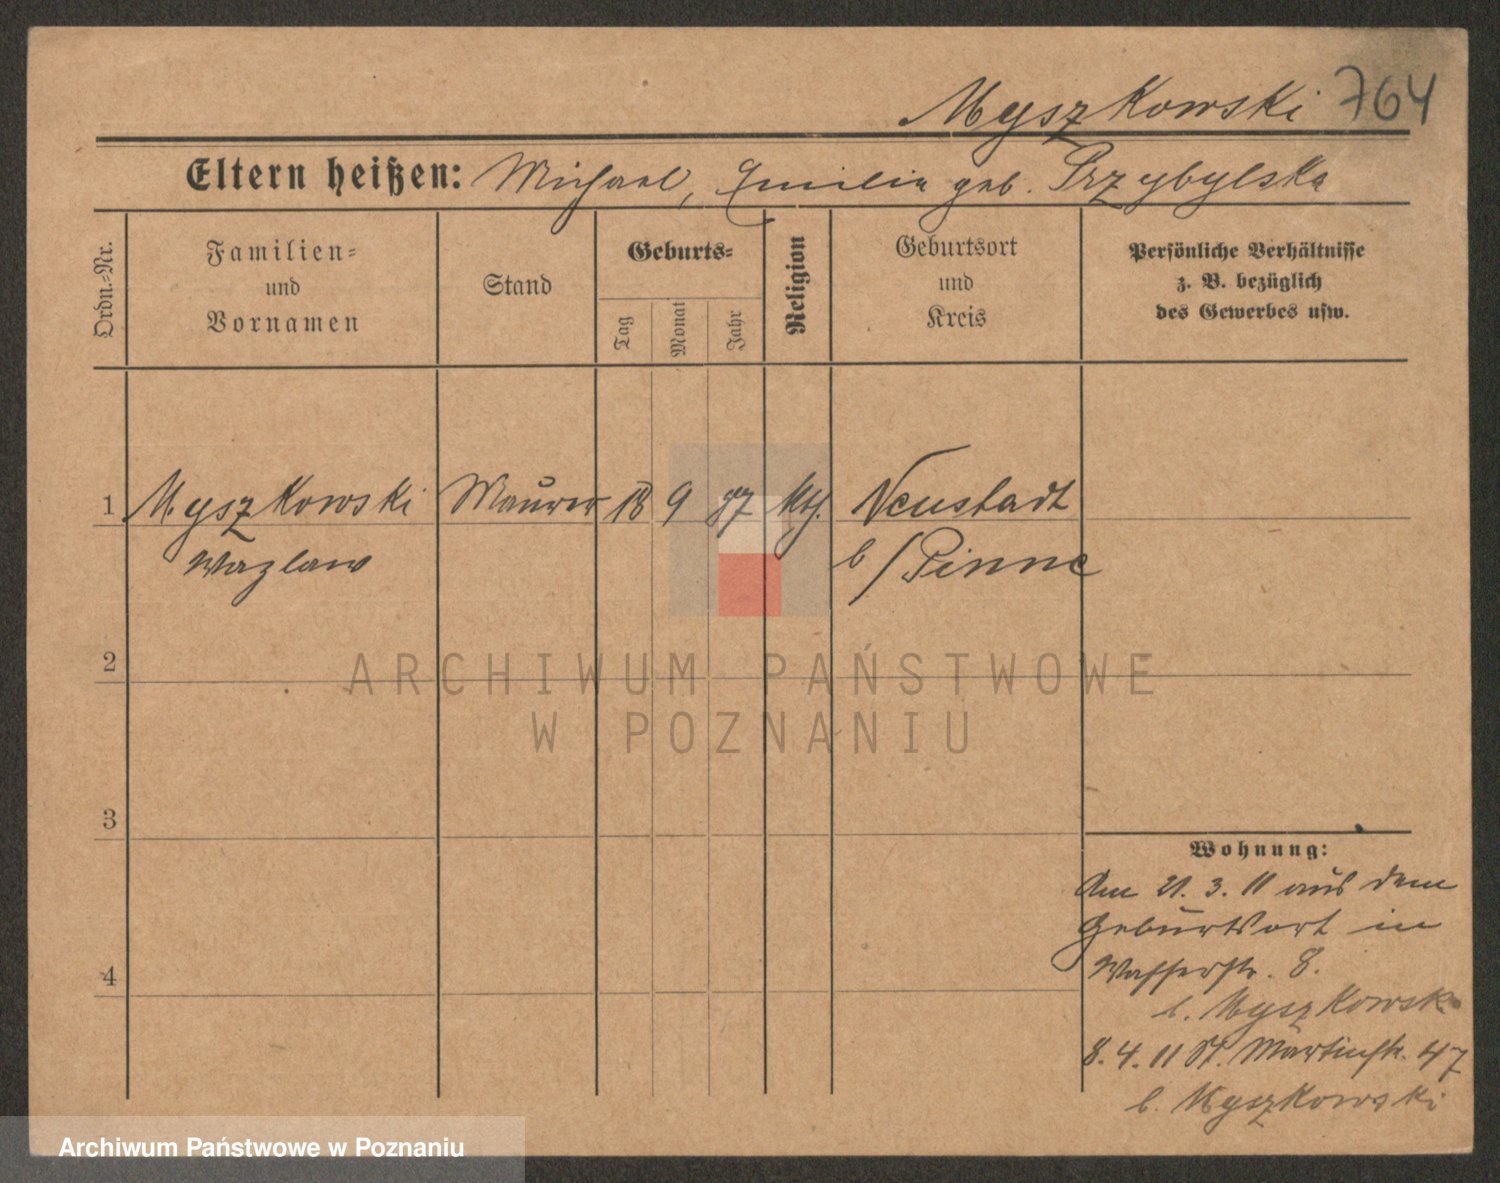 Myszkowski 764
Eltern heißen: Michael, Emilia geb. Przybylska
Ordn.-Nr.
Familien-
und
Vornamen
Stand
Geburts-
Tag
Monat
Jahr
Religion
Geburtsort
und
Kreis
Persönliche Verhältnisse
z. B. bezüglich
des Gewerbes usw.
1 Myszkowski Maurer 18 9 87 kth. Neustadt
Wazlaw b/Pinne
2
ARCHIWUM PAŃSTWOWE
W POZNANIU
3
Wohnung:
Am 21. 3. 11 aus dem
Geburtsort in
4
Wasserstr. 8.
b. Myszkowski
8. 4. 11 St. Martinstr. 47
b. Myszkowski
Archiwum Państwowe w Poznaniu